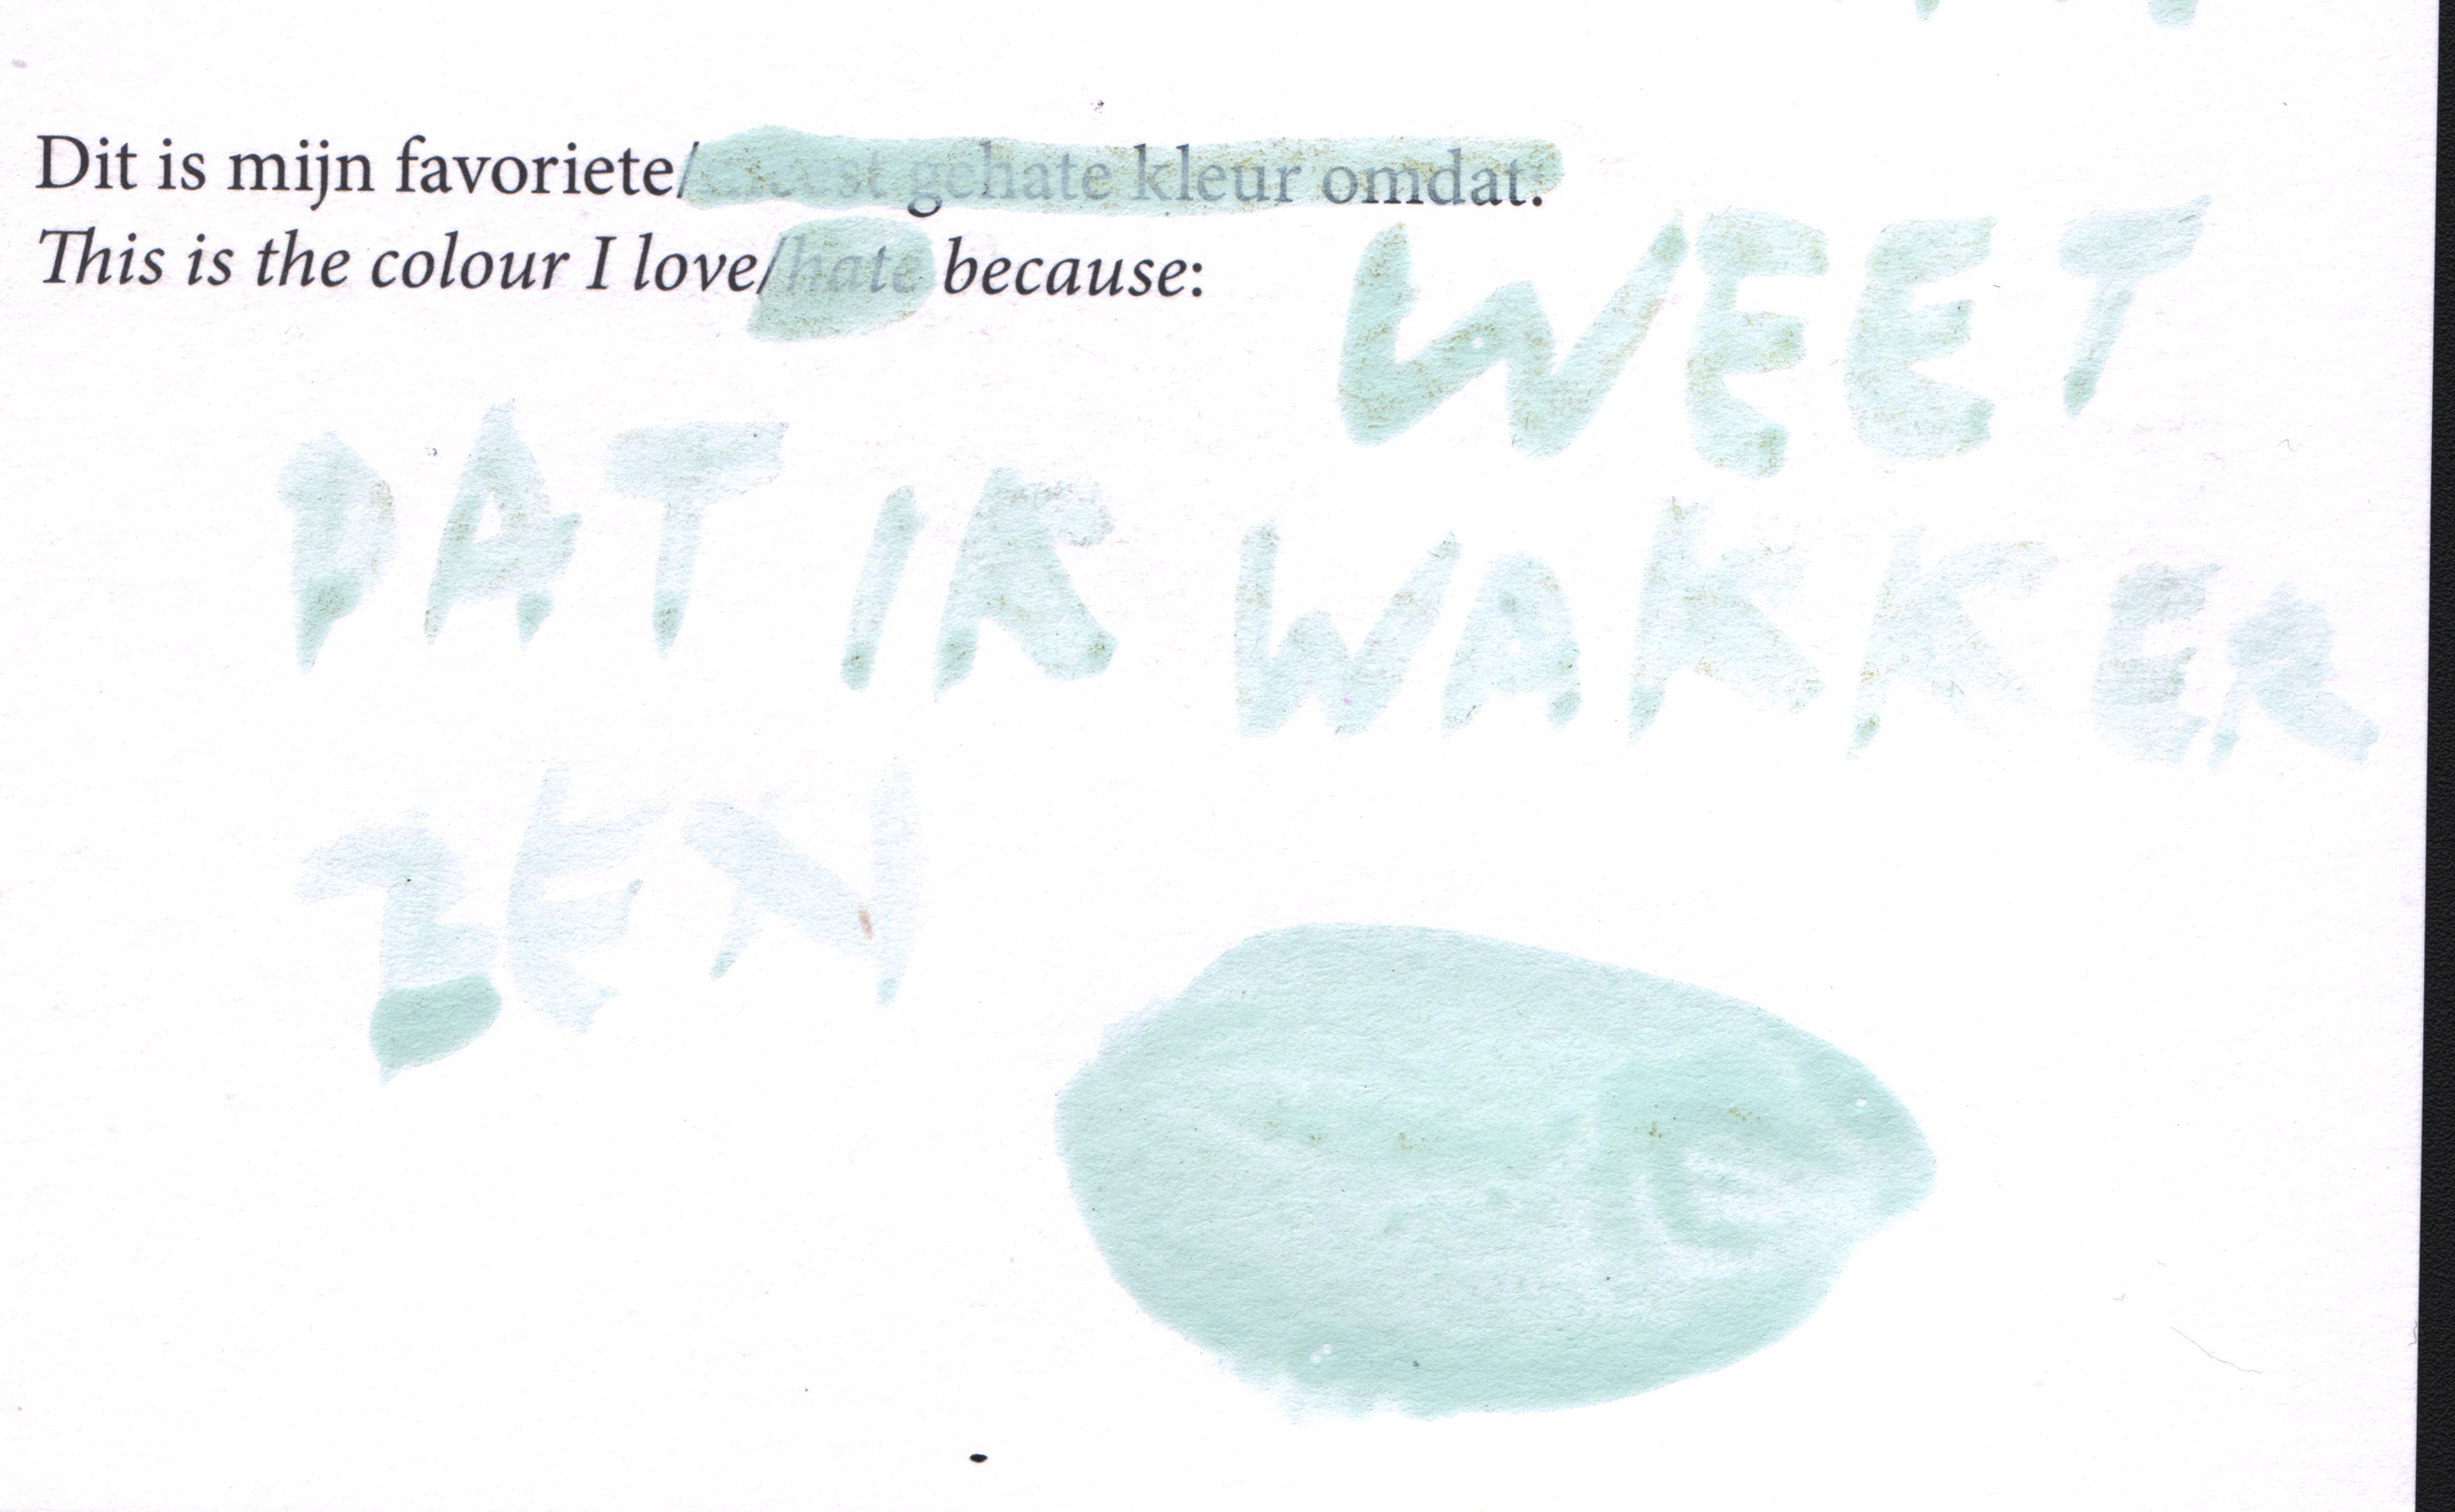 Dit is mijn favoriete/meest gehate kleur omdat:
This is the colour I love/hate because:
WEET
DAT IK WAKKER
BEN